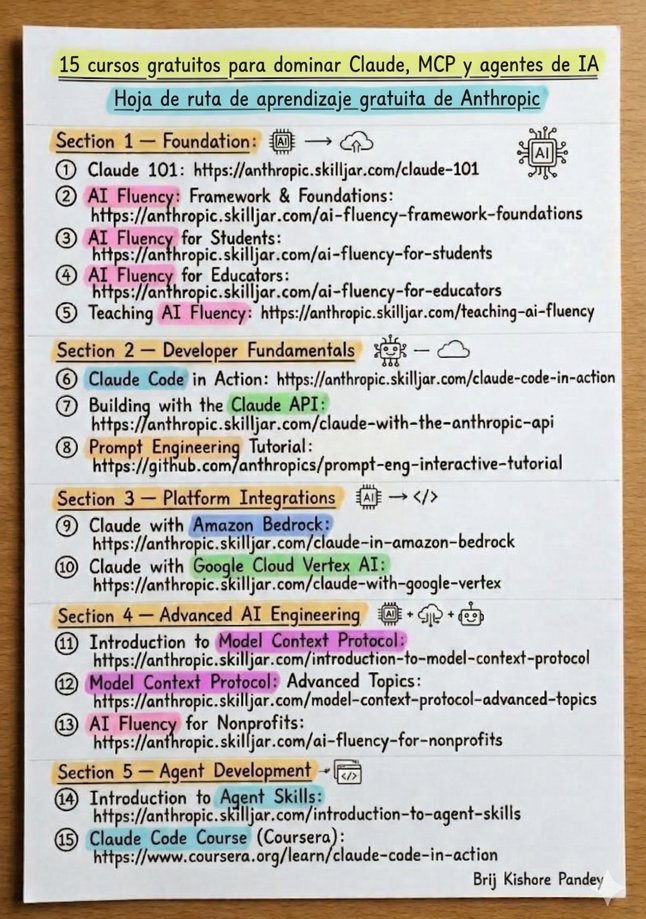 15 cursos gratuitos para dominar Claude, MCP y agentes de IA
Hoja de ruta de aprendizaje gratuita de Anthropic
Section 1 — Foundation:
AI
AI
1 Claude 101: https://anthropic.skilljar.com/claude-101
2 AI Fluency: Framework & Foundations:
https://anthropic.skilljar.com/ai-fluency-framework-foundations
3 AI Fluency for Students:
https://anthropic.skilljar.com/ai-fluency-for-students
4 AI Fluency for Educators:
https://anthropic.skilljar.com/ai-fluency-for-educators
5 Teaching AI Fluency: https://anthropic.skilljar.com/teaching-ai-fluency
Section 2 — Developer Fundamentals
6 Claude Code in Action: https://anthropic.skilljar.com/claude-code-in-action
7 Building with the Claude API:
https://anthropic.skilljar.com/claude-with-the-anthropic-api
8 Prompt Engineering Tutorial:
https://github.com/anthropics/prompt-eng-interactive-tutorial
Section 3 — Platform Integrations
AI → </>
9 Claude with Amazon Bedrock:
https://anthropic.skilljar.com/claude-in-amazon-bedrock
10 Claude with Google Cloud Vertex AI:
https://anthropic.skilljar.com/claude-with-google-vertex
Section 4 — Advanced AI Engineering
AI + +
11 Introduction to Model Context Protocol:
https://anthropic.skilljar.com/introduction-to-model-context-protocol
12 Model Context Protocol: Advanced Topics:
https://anthropic.skilljar.com/model-context-protocol-advanced-topics
13 AI Fluency for Nonprofits:
https://anthropic.skilljar.com/ai-fluency-for-nonprofits
Section 5 — Agent Development
</>
14 Introduction to Agent Skills:
https://anthropic.skilljar.com/introduction-to-agent-skills
15 Claude Code Course (Coursera):
https://www.coursera.org/learn/claude-code-in-action
Brij Kishore Pandey